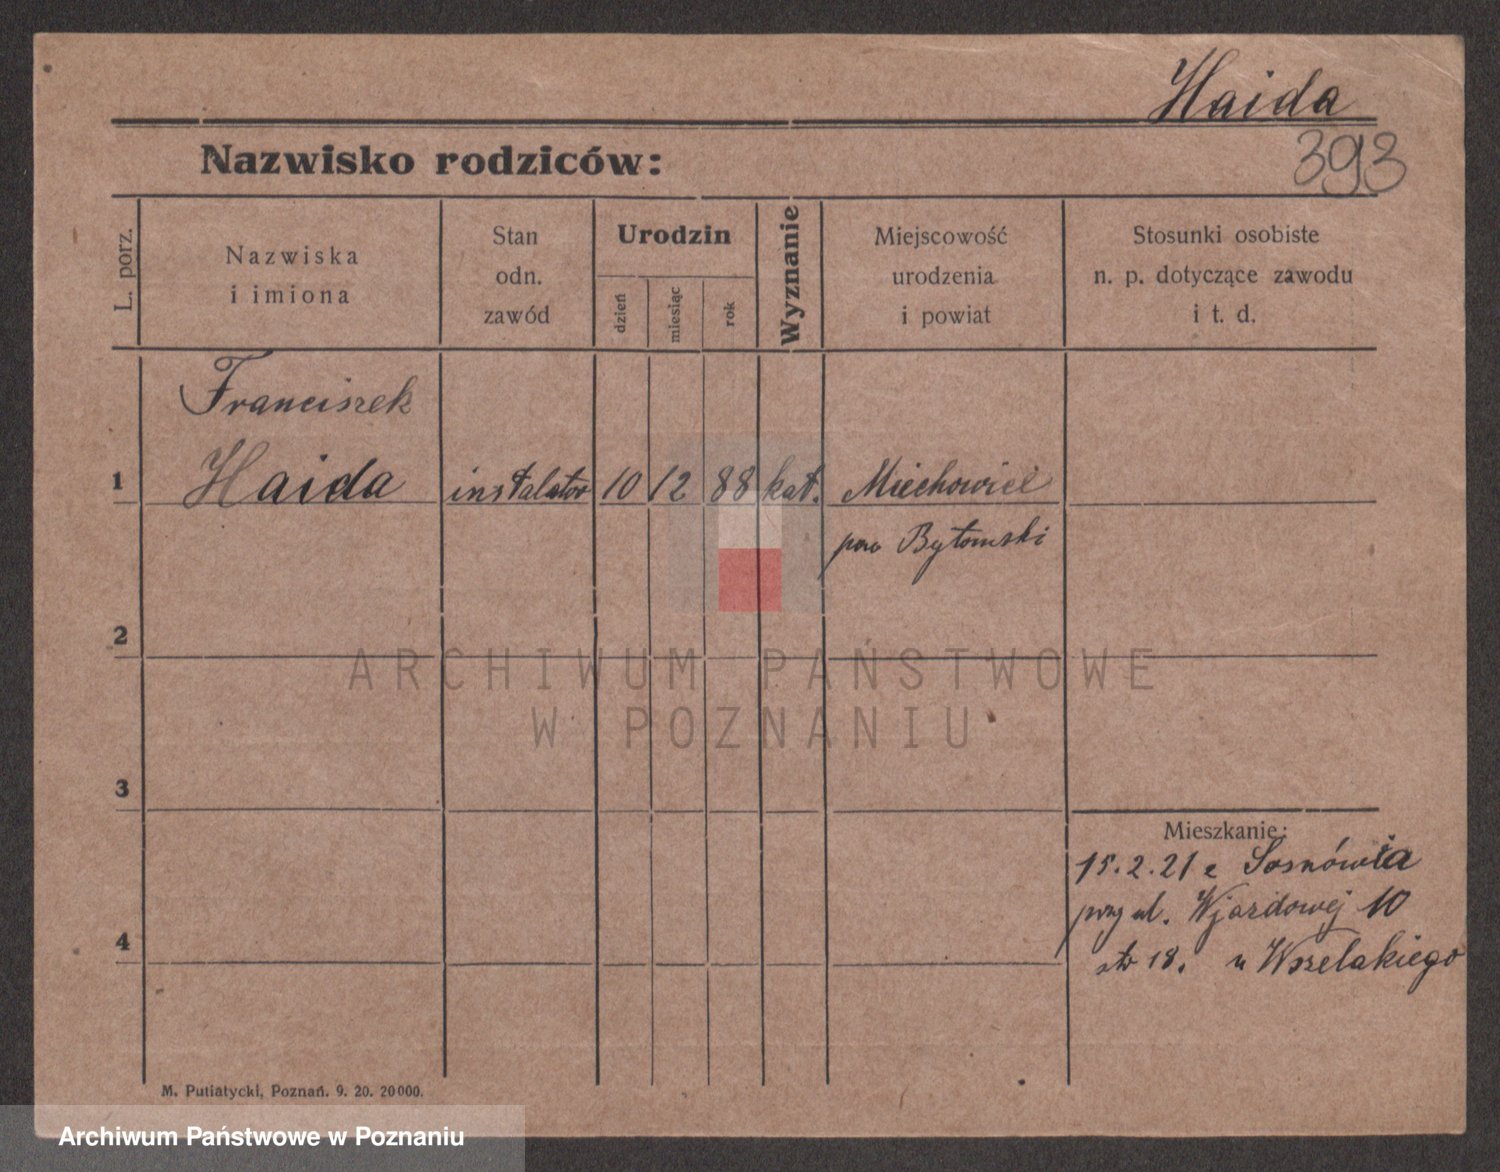 Haida
393
Nazwisko rodziców:
L. porz.
Nazwiska
i imiona
Stan
odn.
zawód
Urodzin
dzień
miesiąc
rok
Wyznanie
Miejscowość
urodzenia
i powiat
Stosunki osobiste
n. p. dotyczące zawodu
i t. d.
Franciszek
1 Haida instalator 10 12 88 kat. Miechowice
pow Bytomski
2
ARCHIWUM PAŃSTWOWE
W POZNANIU
3
Mieszkanie:
15.2.21 z Sosnówca
przy ul. Wjazdowej 10
4
18. u Wszelakiego
M. Putiatycki, Poznań. 9. 20. 20000.
Archiwum Państwowe w Poznaniu